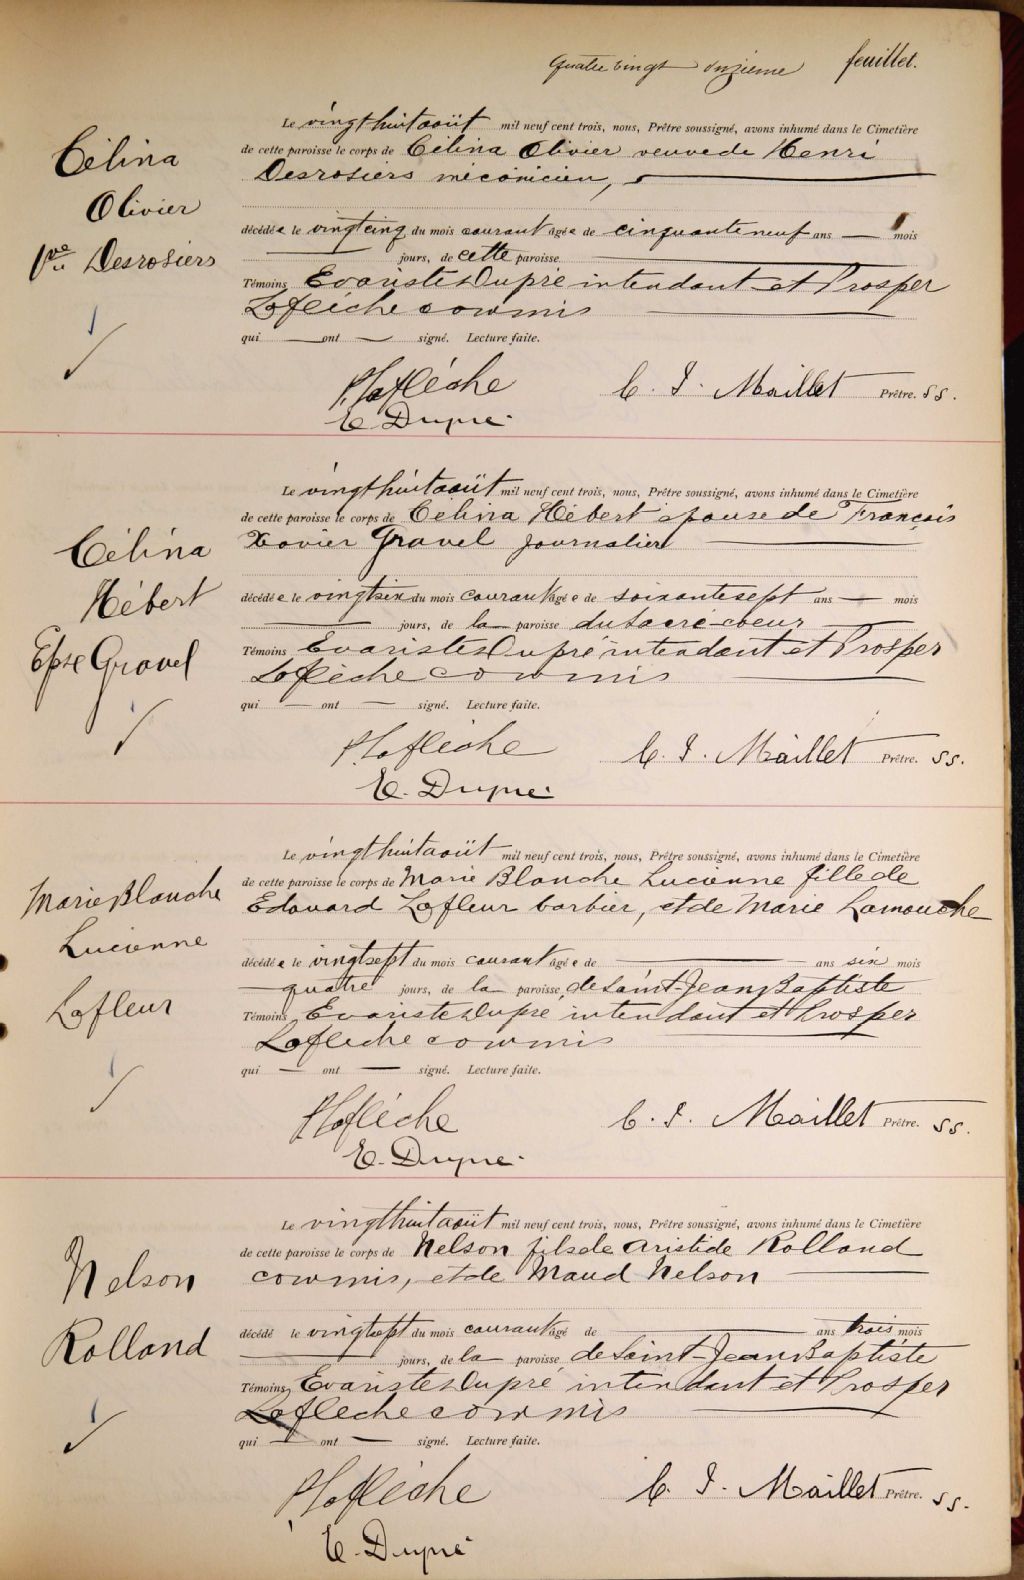 quatre vingt onzième feuillet.
Le vingthuit août mil neuf cent trois, nous, Prêtre soussigné, avons inhumé dans le Cimetière
de cette paroisse le corps de Célina Olivier veuve de Henri
Desrosiers mécanicien,
Célina
Olivier
Vve Desrosiers
décédée le vingtcinq du mois courant âgée de cinquanteneuf ans — mois
— jours, de cette paroisse
Témoins Evariste Dupré intendant et Prosper
Laflèche commis
qui — ont — signé. Lecture faite.
P. Laflèche C. J. Maillet Prêtre. SS.
E. Dupré
Le vingthuit août mil neuf cent trois, nous, Prêtre soussigné, avons inhumé dans le Cimetière
de cette paroisse le corps de Célina Hébert épouse de François
Xavier Gravel journalier
Célina
Hébert
Epse Gravel
décédée le vingtsix du mois courant âgée de soixantesept ans — mois
— jours, de la paroisse du Sacré-coeur
Témoins Evariste Dupré intendant et Prosper
Laflèche commis
qui — ont — signé. Lecture faite.
P. Laflèche C. J. Maillet Prêtre. SS.
E. Dupré
Le vingthuit août mil neuf cent trois, nous, Prêtre soussigné, avons inhumé dans le Cimetière
de cette paroisse le corps de Marie Blanche Lucienne fille de
Edouard Lafleur barbier, et de Marie Lamouche
Marie Blanche
Lucienne
Lafleur
décédée le vingtsept du mois courant âgée de — ans six mois
quatre jours, de la paroisse de Saint-Jean Baptiste
Témoins Evariste Dupré intendant et Prosper
Laflèche commis
qui — ont — signé. Lecture faite.
P. Laflèche C. J. Maillet Prêtre. SS.
E. Dupré
Le vingthuit août mil neuf cent trois, nous, Prêtre soussigné, avons inhumé dans le Cimetière
de cette paroisse le corps de Nelson fils de Aristide Rolland
commis, et de Maud Nelson
Nelson
Rolland
décédé le vingtsept du mois courant âgé de — ans trois mois
— jours, de la paroisse de Saint-Jean Baptiste
Témoins Evariste Dupré intendant et Prosper
Laflèche commis
qui — ont — signé. Lecture faite.
P. Laflèche C. J. Maillet Prêtre. SS.
E. Dupré